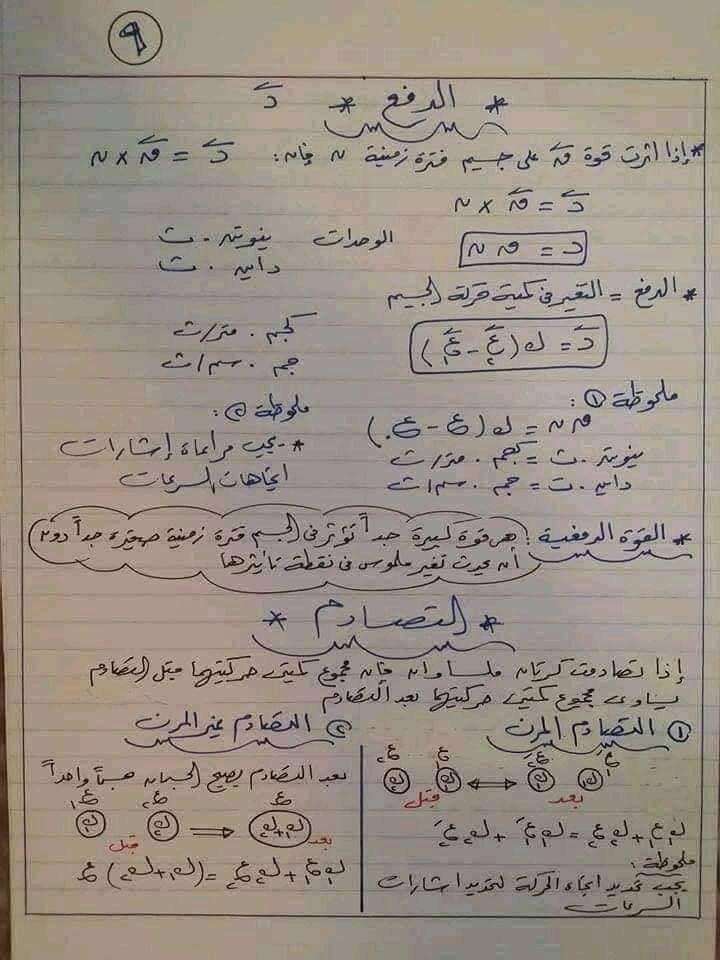 ٩
* الدفع * د
* إذا اثرت قوة ق على جسيم فترة زمنية ن فإن: د = ق × ن
د = ق × ن
د = ق ن
الوحدات نيوتن . ث
داين . ث
* الدفع = التغير فى كمية حركة الجسيم
د = ك (ع٢ - ع١)
كجم . متر/ث
جم . سم/ث
ملحوظة ①:
ق ن = ك (ع - ع.)
نيوتن . ث = كجم . متر/ث
داين . ث = جم . سم/ث
ملحوظة ②:
* يجب مراعاة إشارات
اتجاهات السرعات
* القوة الدفعية : هى قوة كبيرة جداً تؤثر فى الجسم فترة زمنية صغيرة جداً دون
أن يحدث تغير ملموس فى نقطة تأثيرها
* التصادم *
إذا تصادمت كرتان ملساوان فإن مجموع كميتى حركتيهما قبل التصادم
يساوى مجموع كميتى حركتيهما بعد التصادم
① التصادم المرن
ع١ ع٢ ع١َ ع٢َ
ك١ ك٢ ⟷ ك١ ك٢
قبل بعد
ك١ع١ + ك٢ع٢ = ك١ع١َ + ك٢ع٢َ
ملحوظة:
يجب تحديد اتجاه الحركة لتحديد اشارات
السرعات
② التصادم غير المرن
بعد التصادم يصبح الجسمان جسماً واحداً
ع١ ع٢ ع
ك١ ك٢ ⟹ ك١+ك٢
قبل بعد
ك١ع١ + ك٢ع٢ = (ك١+ك٢) ع